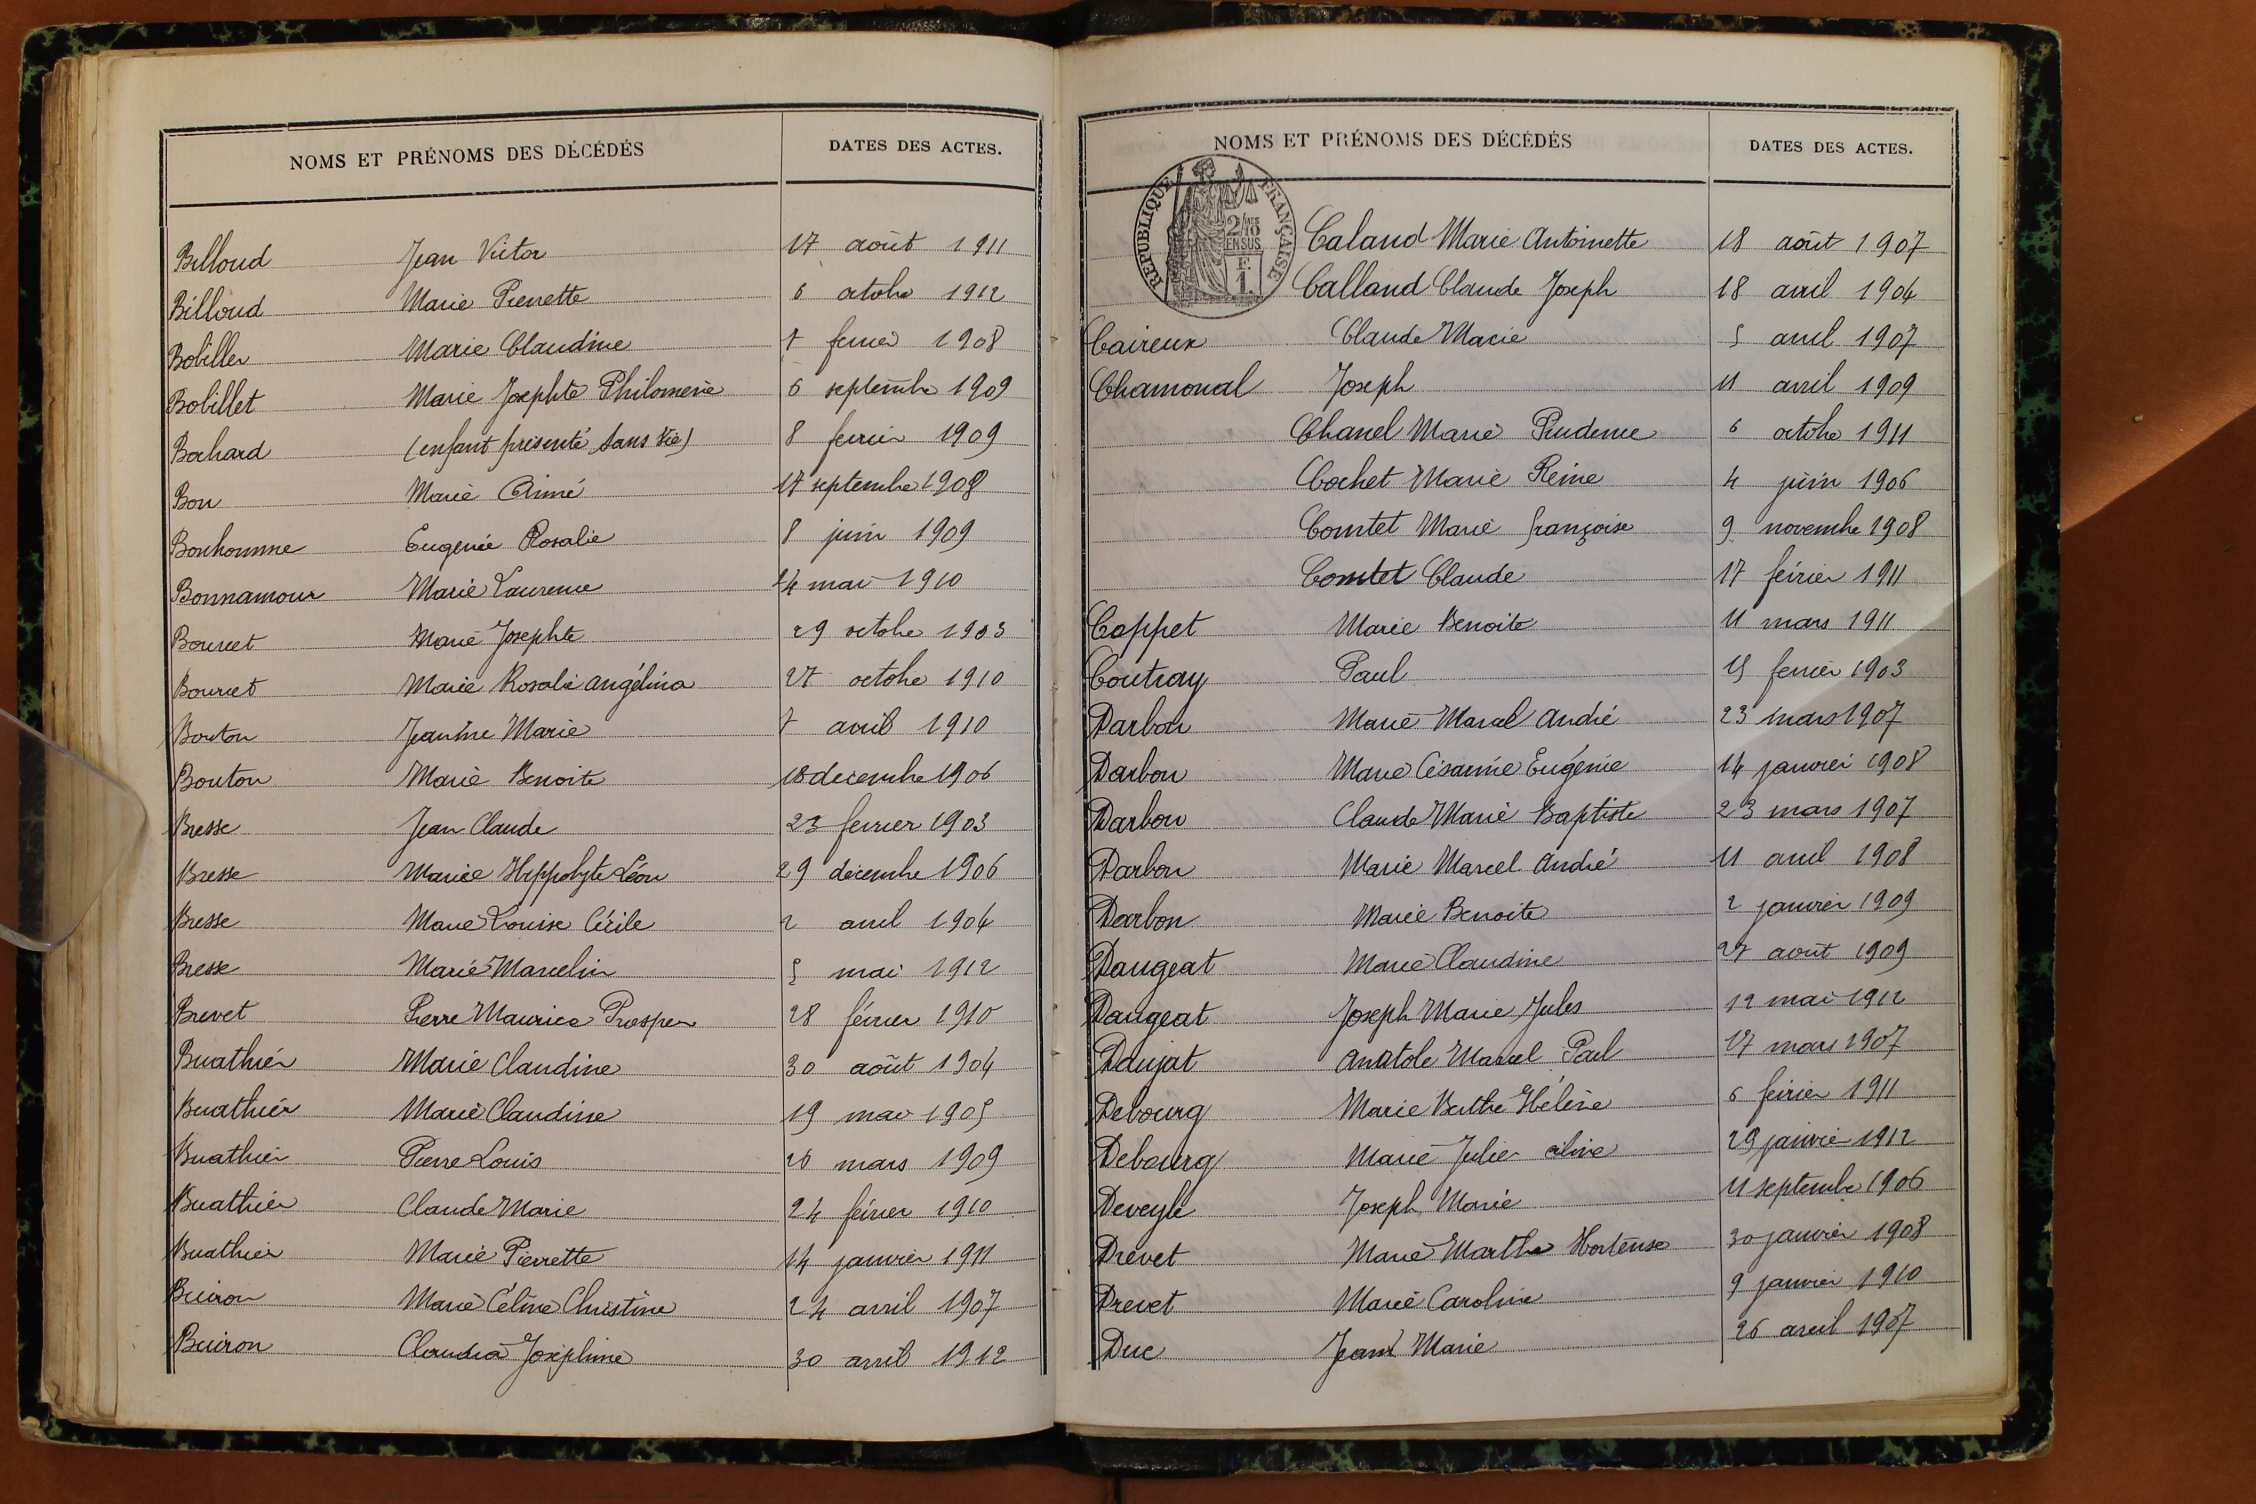 NOMS ET PRÉNOMS DES DÉCÉDÉS DATES DES ACTES.
Billoud Jean Victor 17 août 1911
Billoud Marie Pierrette 6 octobre 1912
Bobillet Marie Claudine 7 février 1908
Bobillet Marie Josephte Philomène 6 septembre 1909
Bochard (enfant présenté sans vie) 8 février 1909
Bon Marie Aimé 17 septembre 1908
Bonhomme Eugenie Rosalie 8 juin 1909
Bonnamour Marie Laurence 24 mai 1910
Bouvet Marie Josephte 29 octobre 1903
Bouvet Marie Rosalie angélina 27 octobre 1910
Bouton Jeanne Marie 7 avril 1910
Bouton Marie Benoite 18 decembre 1906
Bresse Jean Claude 23 fevrier 1903
Bresse Marie Hippolyte Léon 29 décembre 1906
Bresse Marie Louise Cécile 2 avril 1904
Bresse Marie Marcelin 5 mai 1912
Brevet Pierre Maurice Prosper 28 février 1910
Buathier Marie Claudine 30 août 1904
Buathier Marie Claudine 19 mai 1905
Buathier Pierre Louis 26 mars 1909
Buathier Claude Marie 24 février 1910
Buathier Marie Pierrette 14 janvier 1911
Buiron Marie Céline Christine 24 avril 1907
Buiron Claudia Joséphine 30 avril 1912
NOMS ET PRÉNOMS DES DÉCÉDÉS DATES DES ACTES.
RÉPUBLIQUE FRANÇAISE
2/10
EN SUS
F.
1.
Caland Marie Antoinette 18 août 1907
Calland Claude Joseph 18 avril 1904
Caireux Claude Marie 5 avril 1907
Chamonal Joseph 11 avril 1909
Chanel Marie Prudence 6 octobre 1911
Cochet Marie Reine 4 juin 1906
Comtet Marie françoise 9 novembre 1908
Comtet Claude 17 février 1911
Coppet Marie Benoite 11 mars 1911
Coutray Paul 15 fevrier 1903
Darbon Marie Marcel André 23 mars 1907
Darbon Marie Césarine Eugénie 14 janvier 1908
Darbon Claude Marie Baptiste 23 mars 1907
Darbon Marie Marcel André 11 avril 1908
Darbon Marie Benoite 2 janvier 1909
Daugeat Marie Claudine 27 août 1909
Daugeat Joseph Marie Jules 12 mai 1912
Daujat Anatole Marcel Paul 17 mars 1907
Debourg Marie Berthe Hélène 6 février 1911
Debourg Marie Julie aline 29 janvier 1912
Deveyle Joseph Marie 11 septembre 1906
Drevet Marie Marthe Hortense 30 janvier 1908
Drevet Marie Caroline 9 janvier 1910
Duc Jean Marie 26 avril 1907